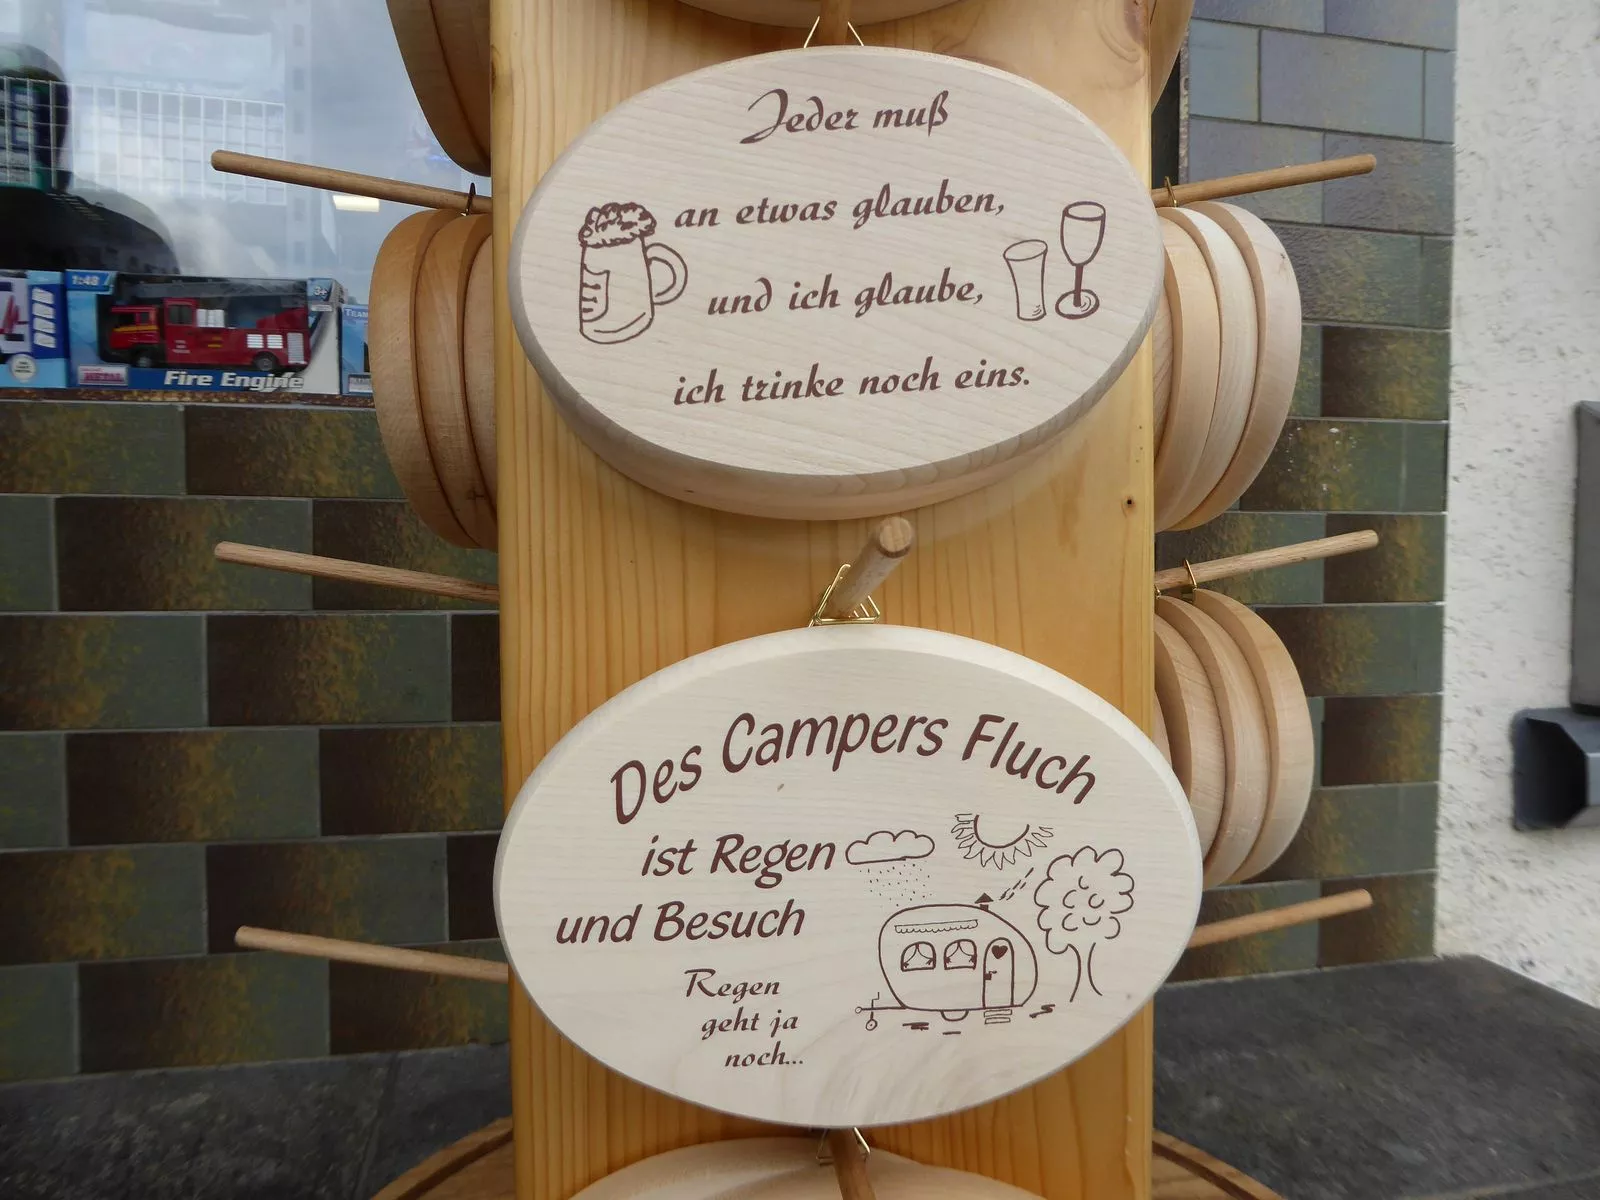 Jeder muß
an etwas glauben,
und ich glaube,
ich trinke noch eins.
1:48
3+
METAL
Fire Engine
Des Campers Fluch
ist Regen
und Besuch
Regen
geht ja
noch...